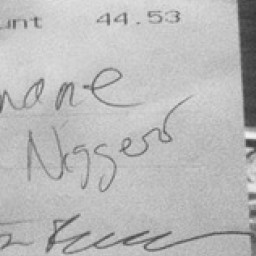 unt 44.53
none
Nigger